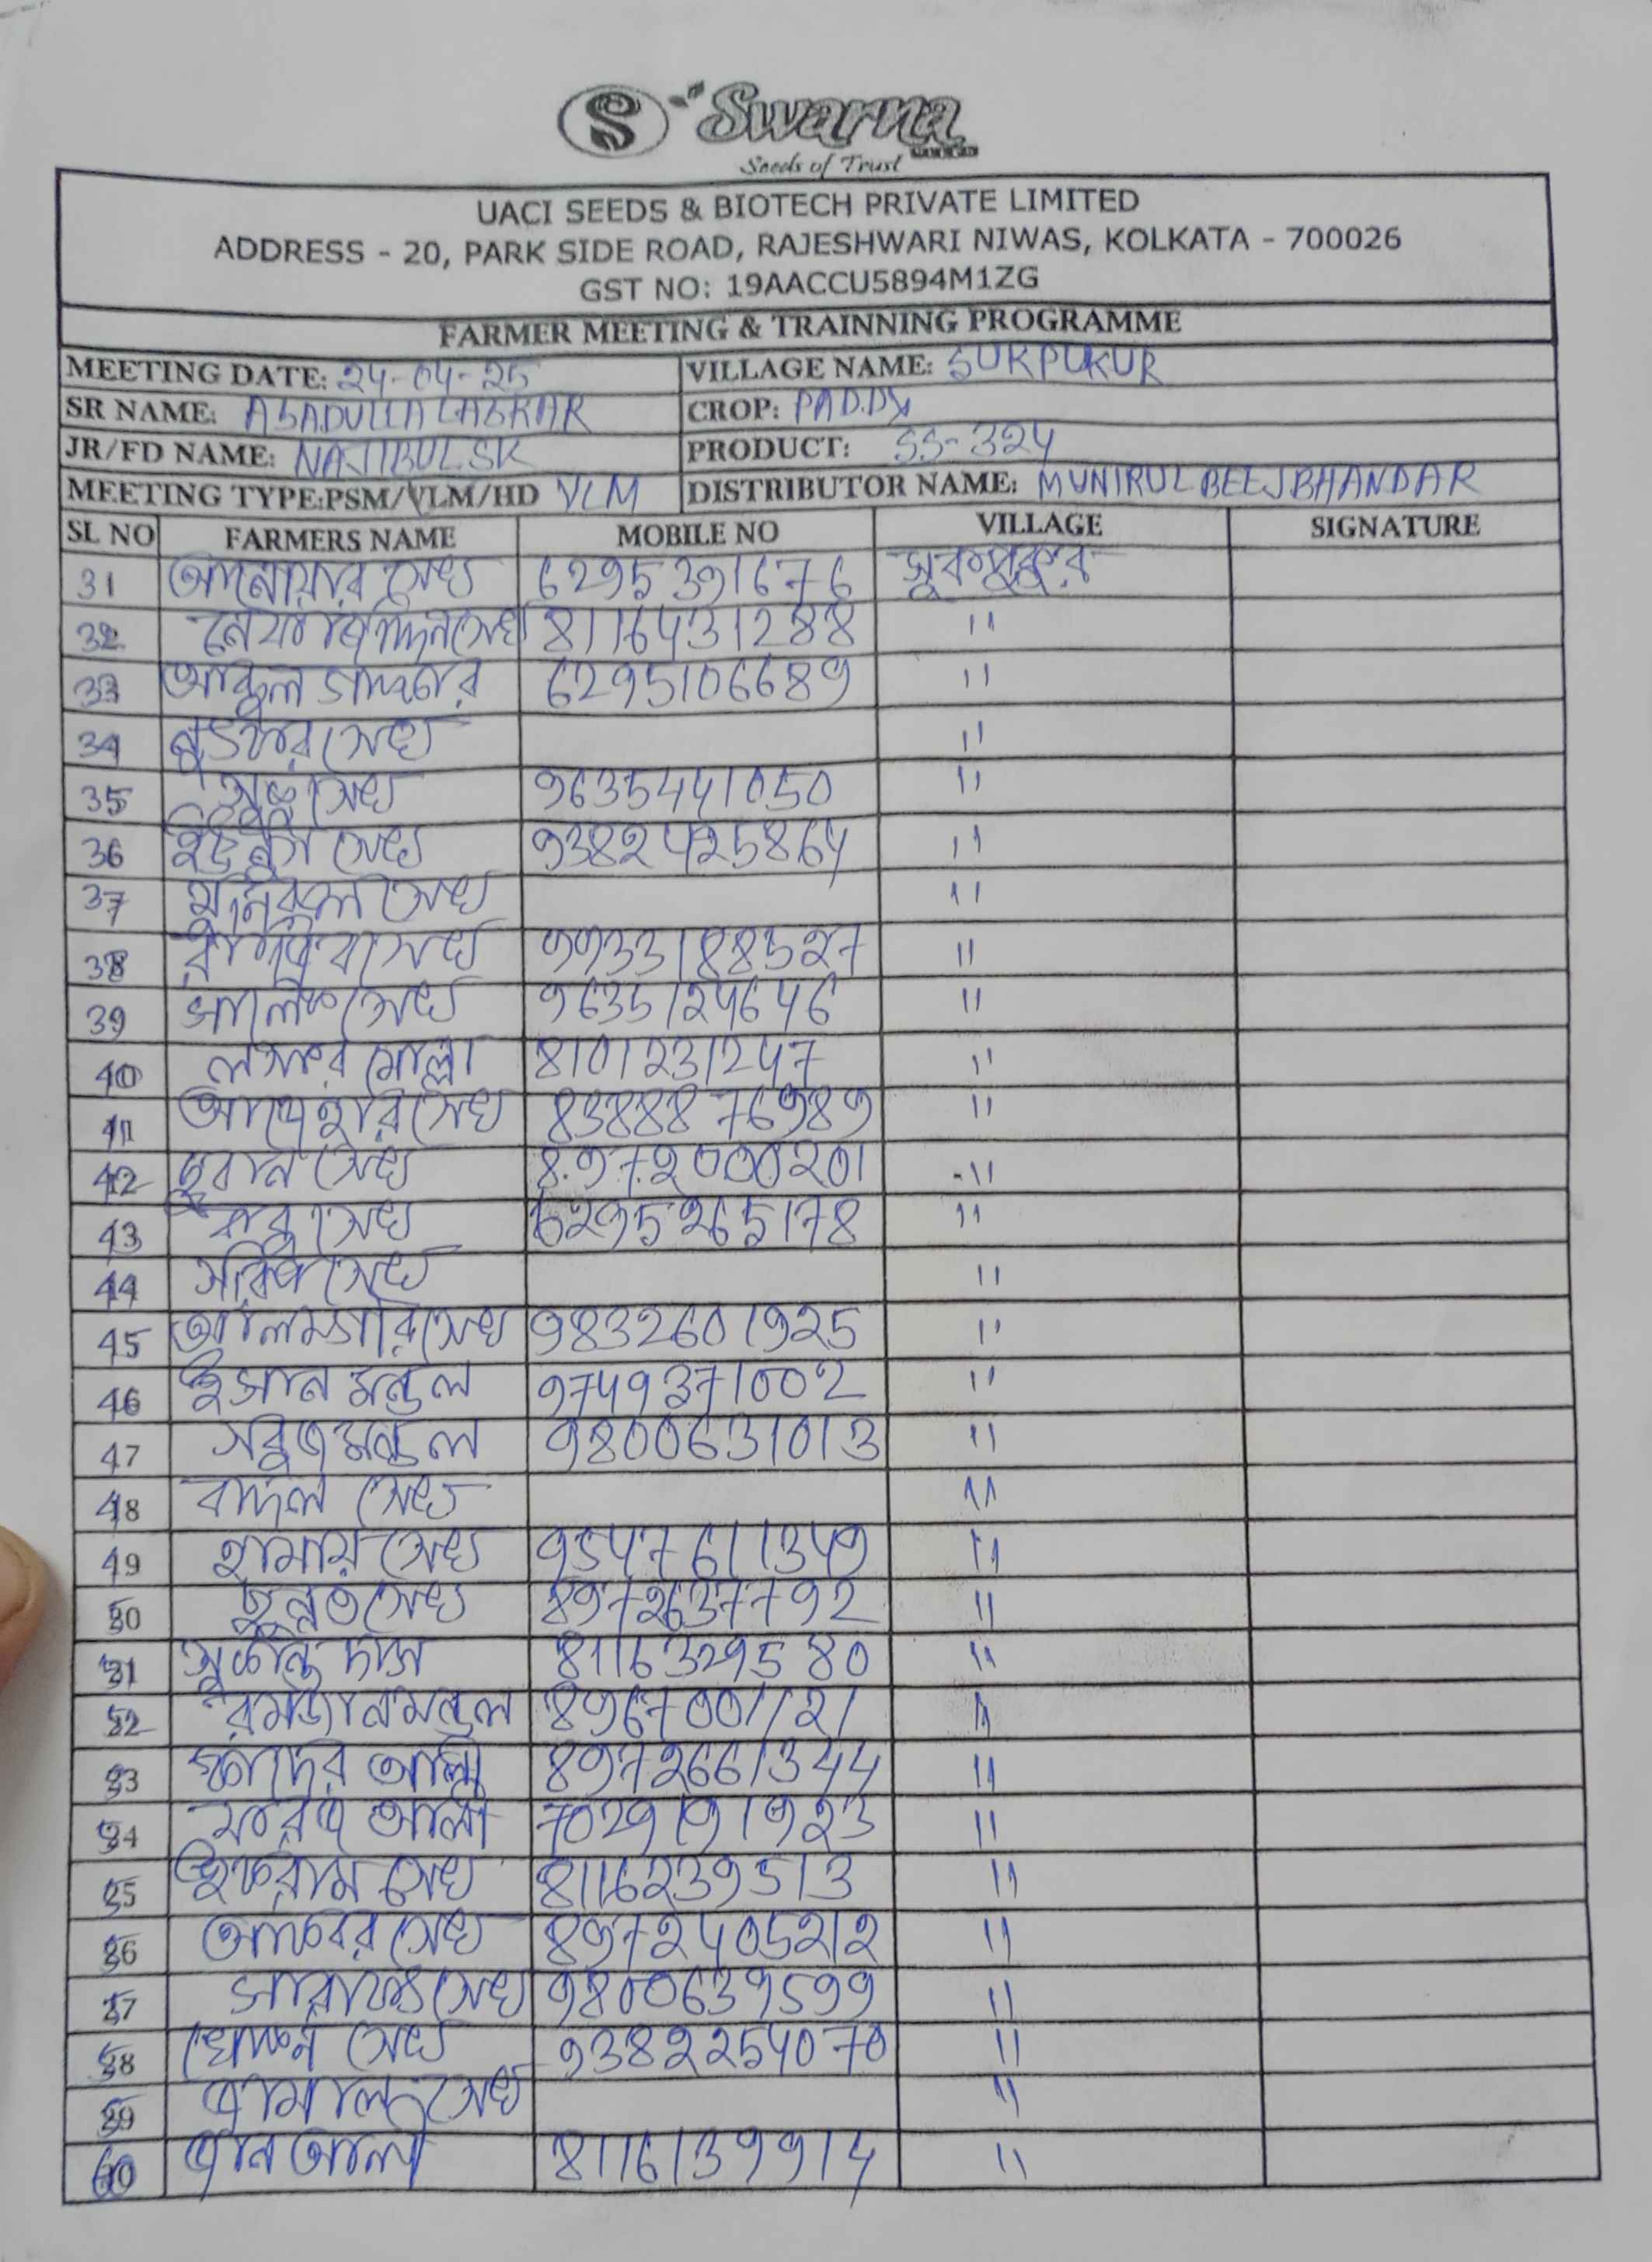 S Swarna
Seeds of Trust
UACI SEEDS & BIOTECH PRIVATE LIMITED
ADDRESS - 20, PARK SIDE ROAD, RAJESHWARI NIWAS, KOLKATA - 700026
GST NO: 19AACCU5894M1ZG
FARMER MEETING & TRAINNING PROGRAMME
MEETING DATE: 24-04-25 VILLAGE NAME: SURPUKUR
SR NAME: ASADULLA LASKAR CROP: PADDY
JR/FD NAME: NAJIBUL SK PRODUCT: SS-324
MEETING TYPE:PSM/VLM/HD VLM DISTRIBUTOR NAME: MUNIRUL BEEJ BHANDAR
SL NO FARMERS NAME MOBILE NO VILLAGE SIGNATURE
31 আনোয়ার সেখ 6295391676
32 সেখ 8116431288 "
33 6295106689 "
34 সেখ "
35 সেখ 9635441050 "
36 সেখ 9382425864 "
37 মনিরুল সেখ "
38 সেখ 9933188527 "
39 সালেক সেখ 9635124646 "
40 লস্কর মোল্লা 8101231247 "
41 সেখ 8388876989 "
42 সেখ 8972000201 "
43 সেখ 6295265178 "
44 সেখ "
45 আলমগীর সেখ 9832601925 "
46 ইসান মন্ডল 9749371002 "
47 সবুজ মন্ডল 9800631013 "
48 বাদল সেখ "
49 সেখ 9547611349 "
50 সেখ 8972637792 "
51 সুকান্ত দাস 8116329580 "
52 রমজান মন্ডল 8967001121 "
53 আলী 8972661344 "
54 আলী 7029191923 "
55 ইকরাম সেখ 8116239513 "
56 আকবর সেখ 8972405212 "
57 সেখ 9800639599 "
58 খোকন সেখ 9382254070 "
59 জামাল সেখ "
60 জান আলী 8116139914 "